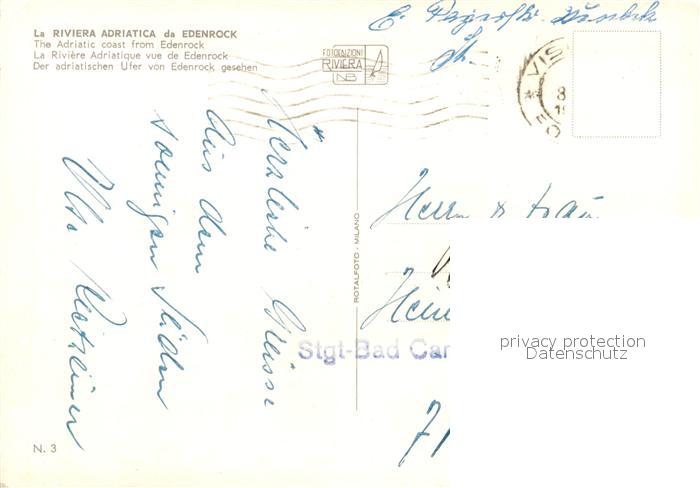 La RIVIERA ADRIATICA da EDENROCK
The Adriatic coast from Edenrock
La Rivière Adriatique vue de Edenrock
Der adriatischen Ufer von Edenrock gesehen
FOTOEDIZIONI
RIVIERA
NB
E.
VIS
8
Herzliche Grüsse
Aus dem
sonnigen Süden
ROTALFOTO - MILANO
Herrn & Frau
Hein
Stgt-Bad Can
71
privacy protection
Datenschutz
N. 3